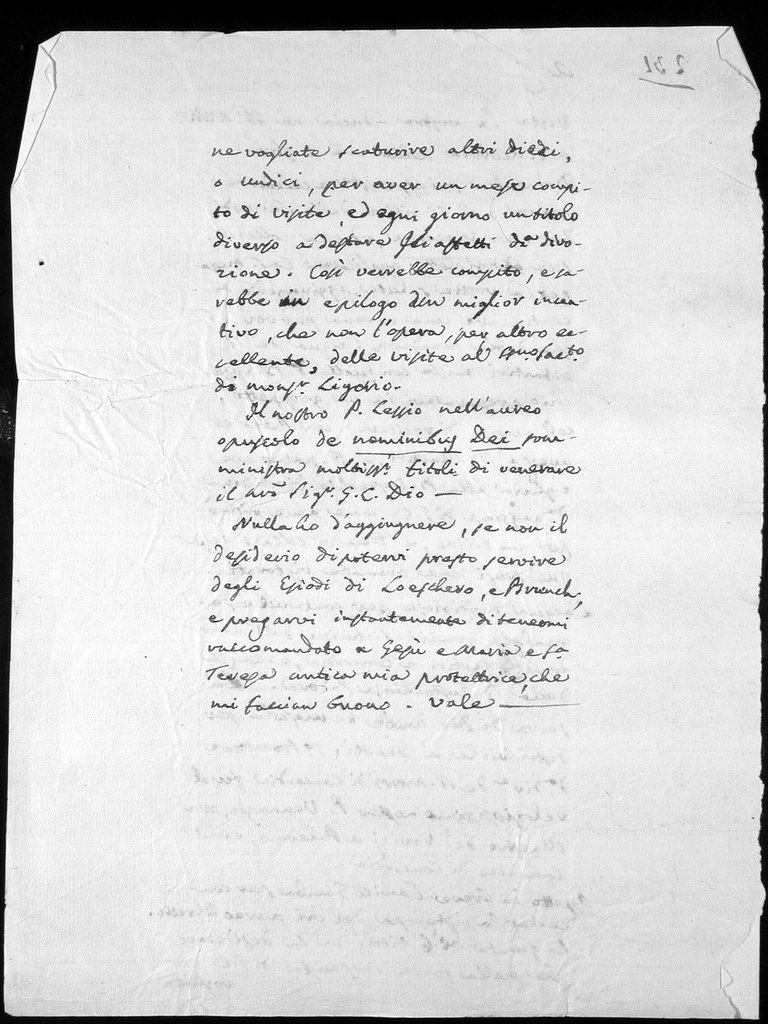 ne vogliate scaturire altri dieci,
o undici, per aver un mese compi-
to di visite, ed ogni giorno un titolo
diverso a destare gli affetti di divo-
zione. Così verrebbe compito, e sa-
rebbe in epilogo d'un miglior incen-
tivo, che non l'opera, per altro ec-
cellente, delle visite al
di monsr. Ligorio.
Il nostro P. Lessio nell'aureo
opuscolo de nominibus Dei som-
ministra moltissi. titoli di venerare
il Sigr. G. C. Dio —
Nulla ho d'aggiugnere, se non il
desiderio di potervi presto servire
degli Esiodi di Loeschero, e Brunch,
e pregarvi instantemente di tenermi
raccomandato a Gesù e Maria e Sa.
Teresa antica mia protettrice, che
mi faccian buono. Vale —